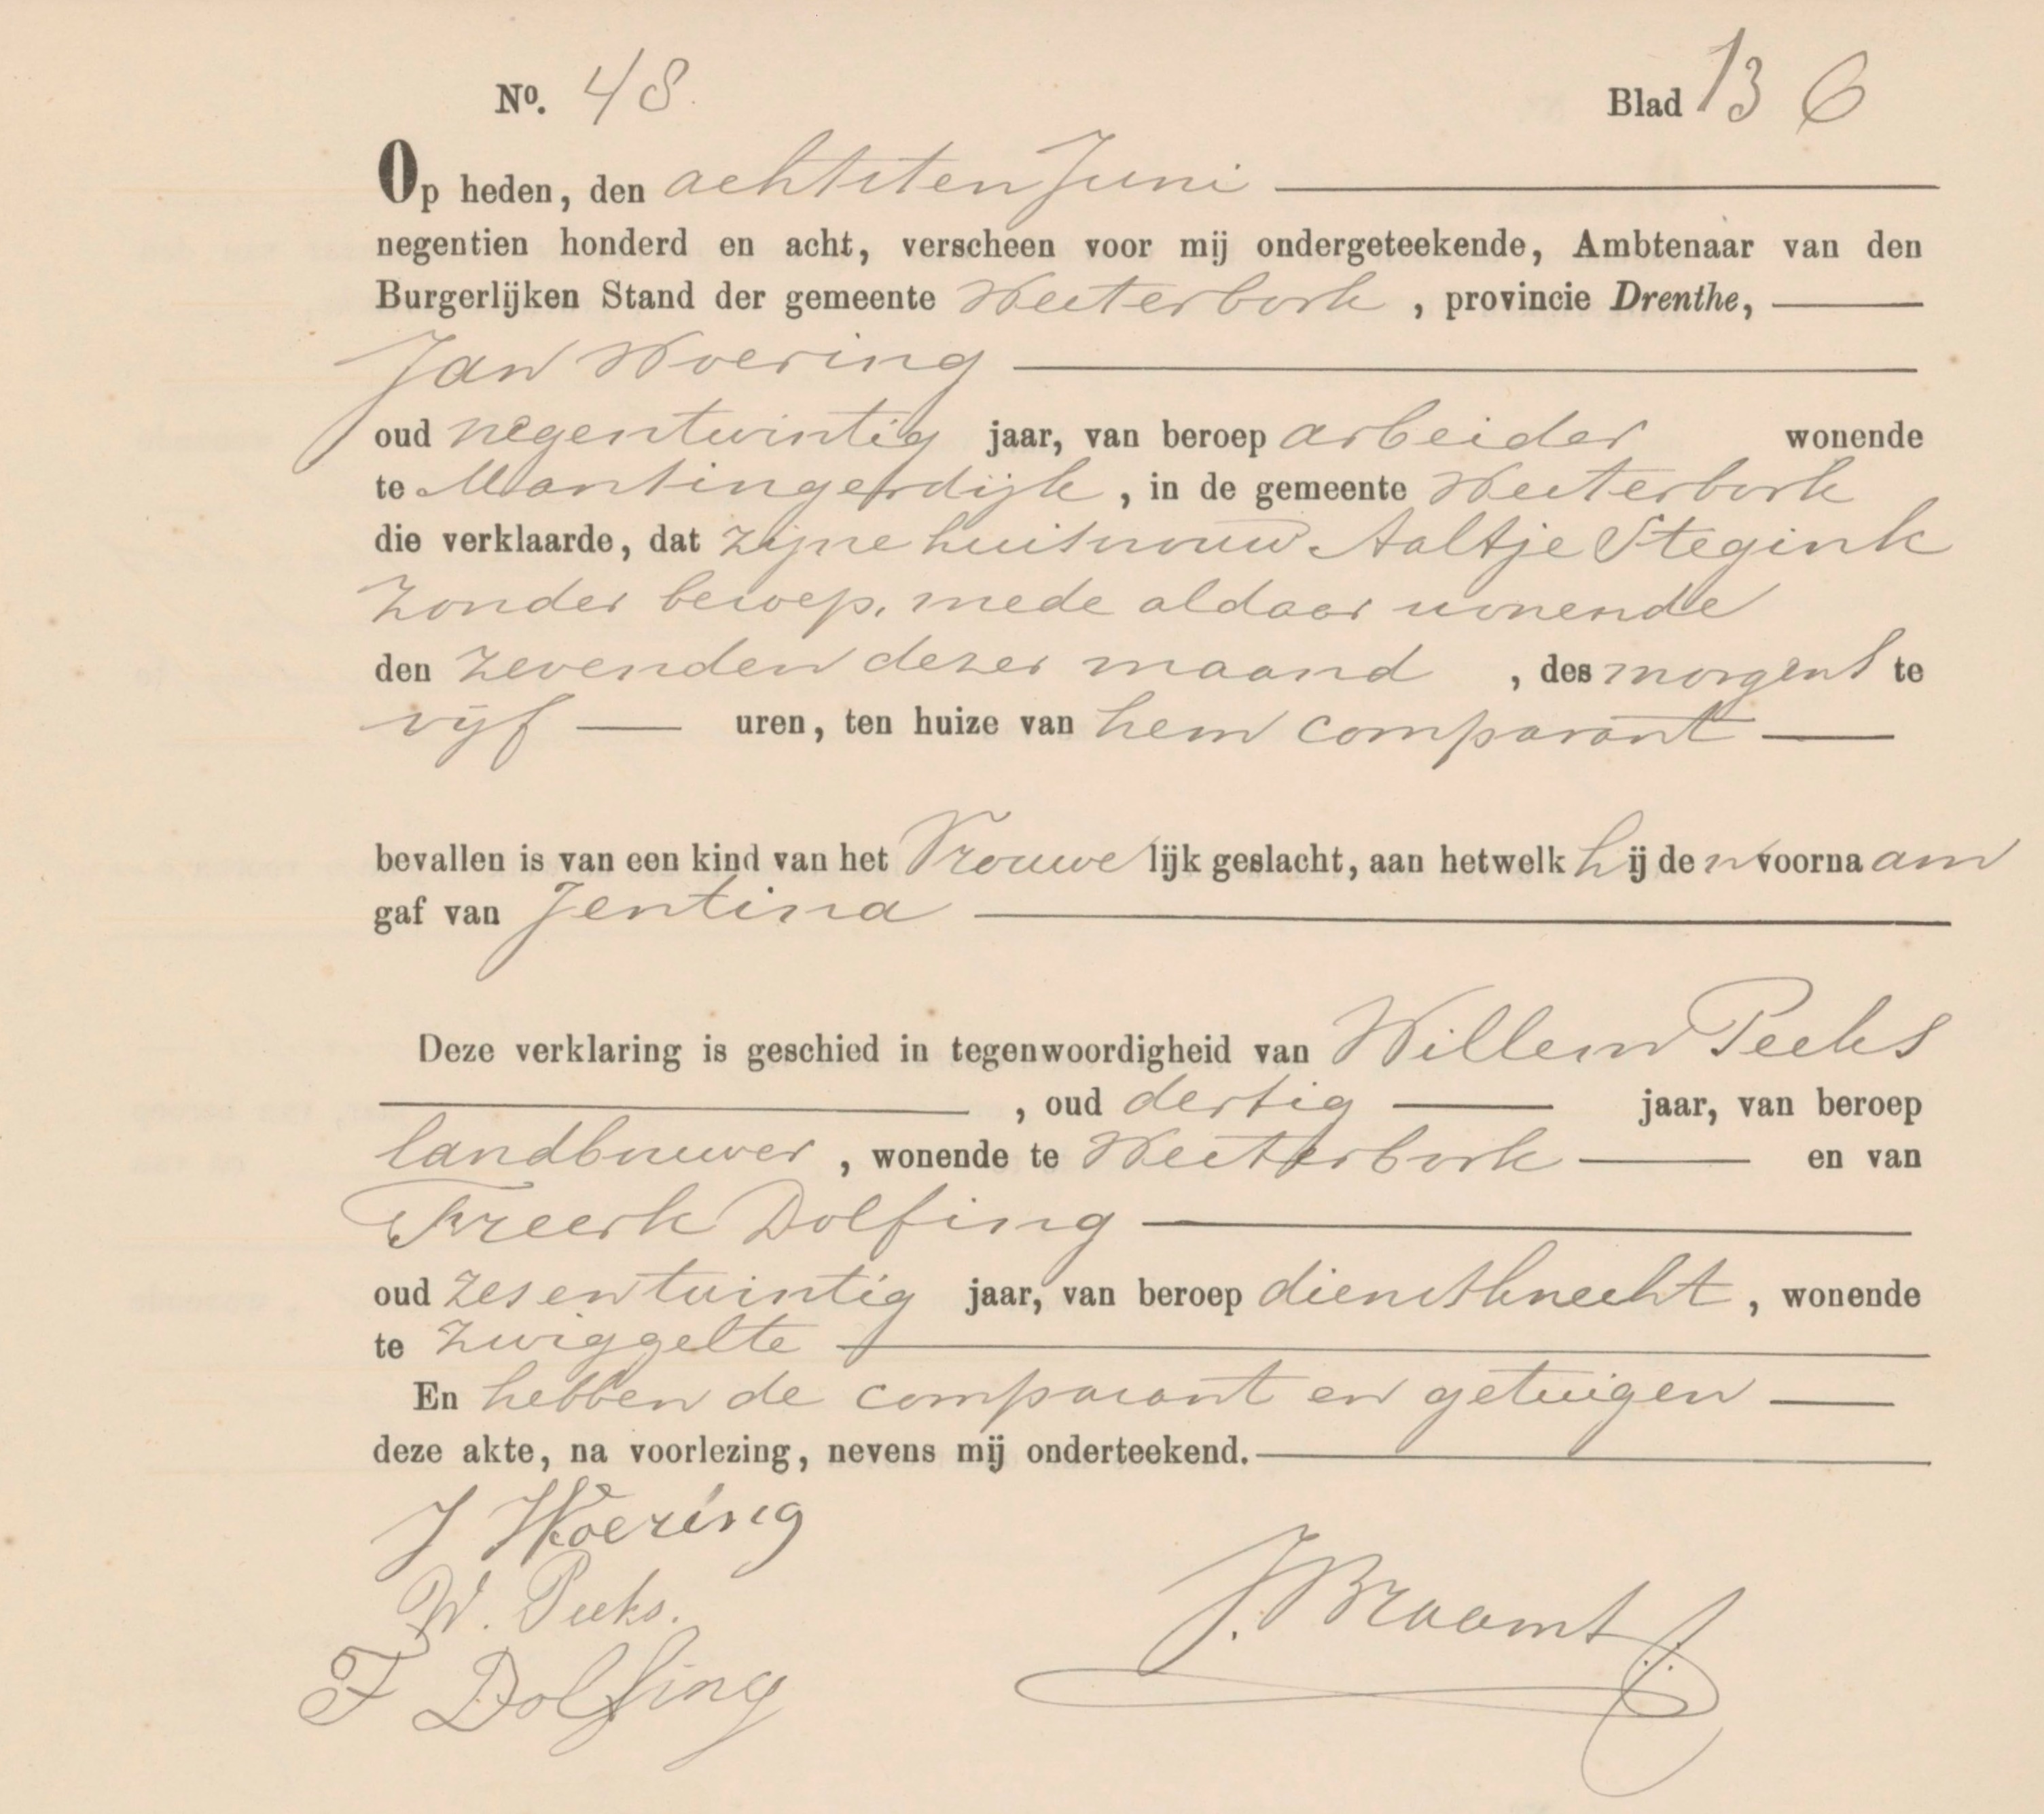 No. 48. Blad 13 6
Op heden, den achtsten Juni
negentien honderd en acht, verscheen voor mij ondergeteekende, Ambtenaar van den
Burgerlijken Stand der gemeente Westerbork, provincie Drenthe,
Jan Woering
oud negentwintig jaar, van beroep arbeider wonende
te Mantingerdijk, in de gemeente Westerbork
die verklaarde, dat zijne huisvrouw Aaltje Stegink
zonder beroep, mede aldaar wonende
den zevenden dezer maand, des morgens te
vijf uren, ten huize van hem comparant
bevallen is van een kind van het Vrouwelijk geslacht, aan hetwelk hij den voornaam
gaf van Jentina
Deze verklaring is geschied in tegenwoordigheid van Willem Peeks
, oud dertig jaar, van beroep
landbouwer, wonende te Westerbork en van
Freerk Dolfing
oud zesentwintig jaar, van beroep dienstknecht, wonende
te Zwiggelte
En hebben de comparant en getuigen
deze akte, na voorlezing, nevens mij onderteekend.
J Woering
W. Peeks.
J. Braamt
F Dolfing